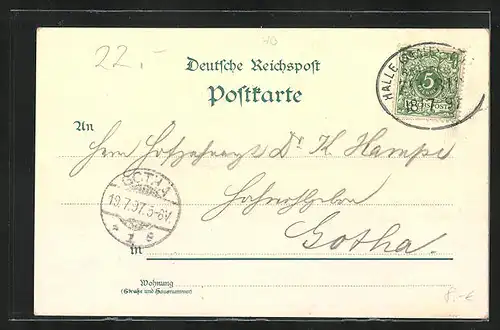 22.-
Deutsche Reichspost
Postkarte
HALLE (SAALE)
5
18 7
An
Herrn Hofzahnarzt Dr. K. Hampe
Hochwohlgeboren
GOTHA
19.7.97.5-6V.
* 1 e
Gotha.
in
Wohnung
(Straße und Hausnummer)
8.-€